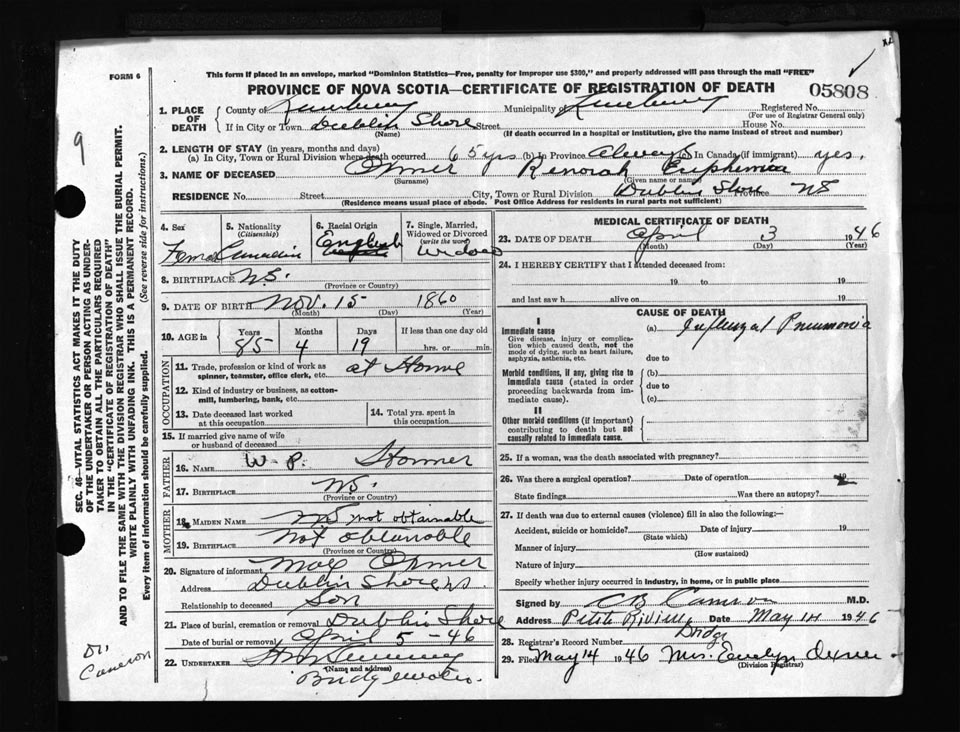 FORM 6
This form if placed in an envelope, marked "Dominion Statistics—Free, penalty for improper use $300," and properly addressed will pass through the mail "FREE"
PROVINCE OF NOVA SCOTIA—CERTIFICATE OF REGISTRATION OF DEATH
05808
9
1. PLACE OF DEATH County of Lunenburg Municipality of Lunenburg Registered No.
(For use of Registrar General only)
If in City or Town Dublin Shore Street House No.
(Name) (If death occurred in a hospital or institution, give the name instead of street and number)
2. LENGTH OF STAY (in years, months and days)
(a) In City, Town or Rural Division where death occurred 65 yrs (b) in Province always (c) In Canada (if immigrant) yes.
3. NAME OF DECEASED Renorah Euphemia
(Surname) (Given name or names)
RESIDENCE No. Street City, Town or Rural Division Dublin Shore Province NS
(Residence means usual place of abode. Post Office Address for residents in rural parts not sufficient)
4. Sex Female
5. Nationality (Citizenship) Canadian
6. Racial Origin English
7. Single, Married, Widowed or Divorced (write the word) Widow
8. BIRTHPLACE N.S.
(Province or County)
9. DATE OF BIRTH Nov. 15 1860
(Month) (Day) (Year)
10. AGE in Years Months Days If less than one day old
85 4 19 hrs. or min.
OCCUPATION
11. Trade, profession or kind of work as spinner, teamster, office clerk, etc. at Home
12. Kind of industry or business, as cotton-mill, lumbering, bank, etc.
13. Date deceased last worked at this occupation
14. Total yrs. spent in this occupation
15. If married give name of wife or husband of deceased
FATHER
16. NAME W. P.
17. BIRTHPLACE N.S.
(Province or County)
MOTHER
18. MAIDEN NAME not obtainable
19. BIRTHPLACE Not obtainable
(Province or County)
20. Signature of informant
Address Dublin Shore NS
Relationship to deceased Son
21. Place of burial, cremation or removal Dublin Shore
Date of burial or removal April 5 - 46
22. UNDERTAKER
(Name and address)
Bridgewater.
MEDICAL CERTIFICATE OF DEATH
23. DATE OF DEATH April 3 1946
(Month) (Day) (Year)
24. I HEREBY CERTIFY that I attended deceased from:
19 to 19
and last saw h alive on 19
CAUSE OF DEATH
I
Immediate cause (a) Influenzal Pneumonia
Give disease, injury or complication which caused death, not the mode of dying, such as heart failure, asphyxia, asthenia, etc.
due to
Morbid conditions, if any, giving rise to immediate cause (stated in order proceeding backwards from immediate cause).
(b)
due to
(c)
II
Other morbid conditions (if important) contributing to death but not causally related to immediate cause.
25. If a woman, was the death associated with pregnancy?
26. Was there a surgical operation? Date of operation 19
State findings Was there an autopsy?
27. If death was due to external causes (violence) fill in also the following:—
Accident, suicide or homicide? Date of injury 19
(State which)
Manner of injury
(How sustained)
Nature of injury
Specify whether injury occurred in industry, in home, or in public place
Signed by C B Cameron M.D.
Address Petite Riviere Bridge Date May 14 1946
28. Registrar's Record Number
29. Filed May 14 1946 Mrs. Evelyn
(Division Registrar)
SEC. 46—VITAL STATISTICS ACT MAKES IT THE DUTY
OF THE UNDERTAKER OR PERSON ACTING AS UNDER-
TAKER TO OBTAIN ALL THE PARTICULARS REQUIRED
IN THE "CERTIFICATE OF REGISTRATION OF DEATH"
AND TO FILE THE SAME WITH THE DIVISION REGISTRAR WHO SHALL ISSUE THE BURIAL PERMIT.
WRITE PLAINLY WITH UNFADING INK. THIS IS A PERMANENT RECORD.
Every item of information should be carefully supplied. (See reverse side for instructions.)
Dr.
Cameron